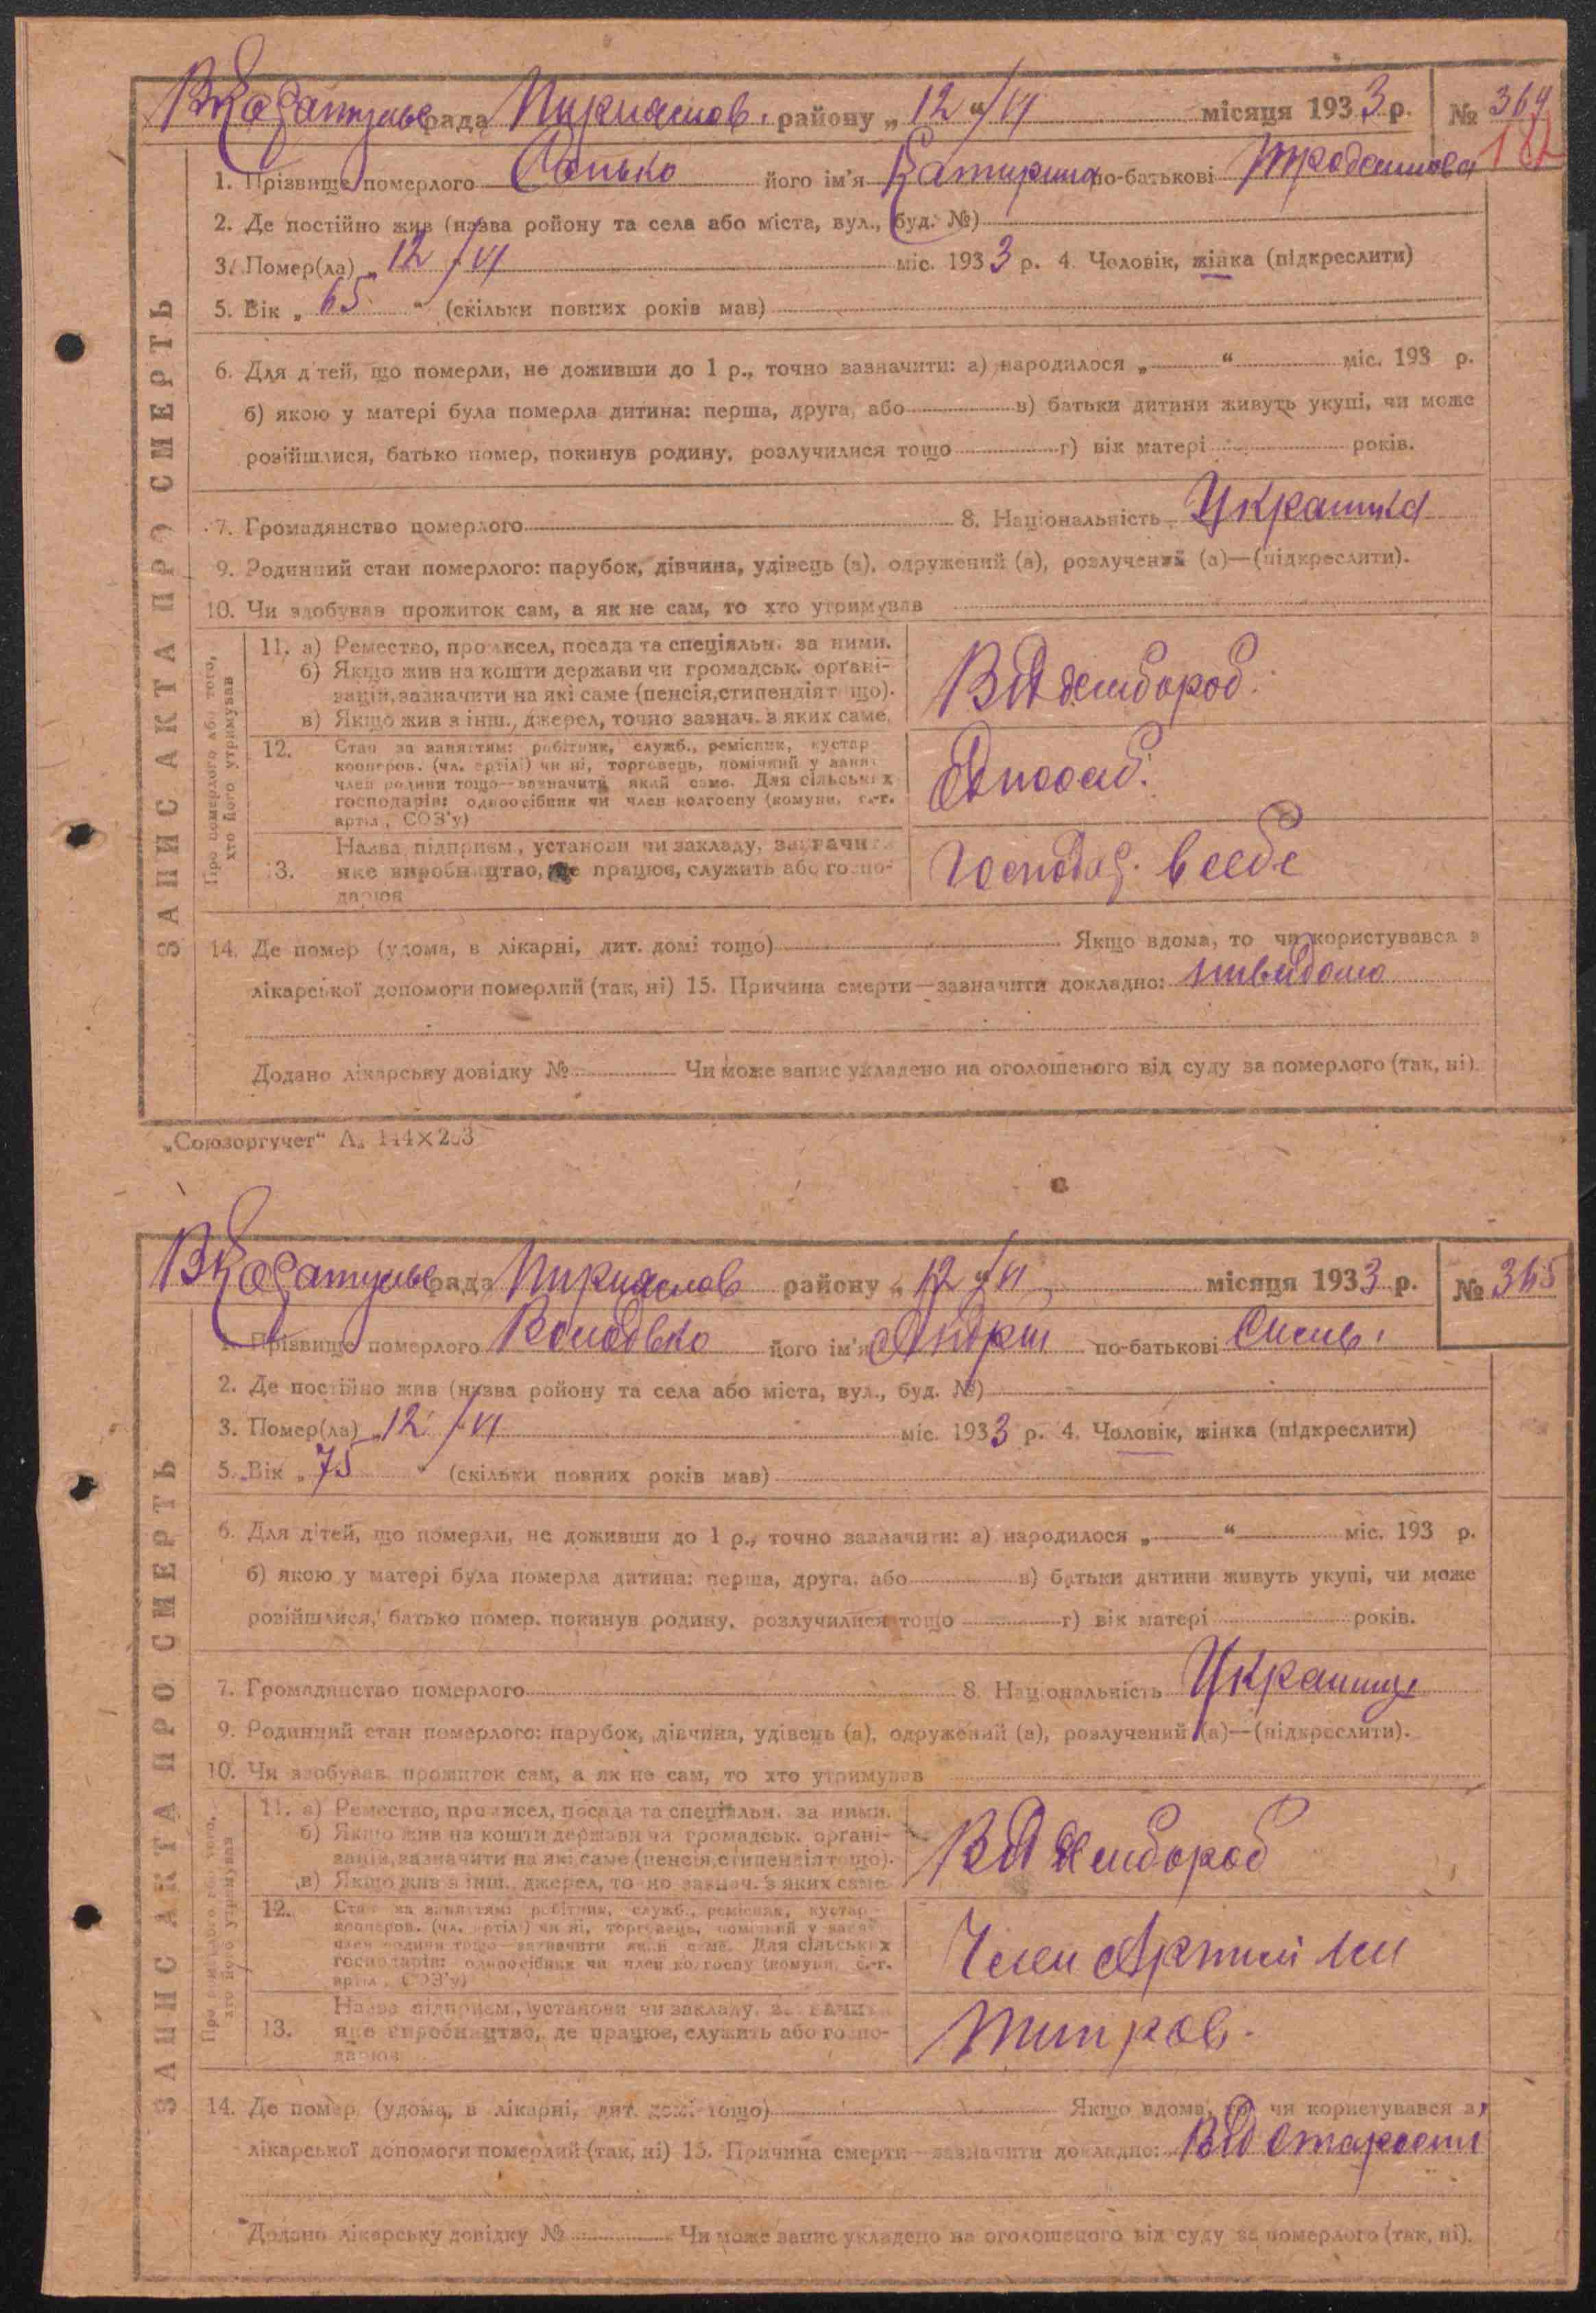 ВКаратульс рада Пирияслов. району „12“/VI місяця 1933 р. № 364
182
1. Прізвище померлого його ім'я Катирина по-батькові
2. Де постійно жив (назва ройону та села або міста, вул., буд. №)
3. Помер(ла) „12/VI міс. 1933 р. 4. Чоловік, жінка (підкреслити)
5. Вік „65“ (скільки повних років мав)
6. Для дітей, що померли, не доживши до 1 р., точно зазначити: а) народилося „ “ міс. 193 р.
б) якою у матері була померла дитина: перша, друга, або в) батьки дитини живуть укупі, чи може
розійшлися, батько помер, покинув родину, розлучилися тощо г) вік матері років.
7. Громадянство померлого 8. Національність Украинка
9. Родинний стан померлого: парубок, дівчина, удівець (а), одружений (а), розлучений (а)—(підкреслити).
10. Чи здобував прожиток сам, а як не сам, то хто утримував
ЗАПИС АКТА ПРО СМЕРТЬ
Про померлого або того,
хто його утримував
11. а) Ремество, промисел, посада та спеціяльн. за ними.
б) Якщо жив на кошти держави чи громадськ. органі-
зацій, зазначити на які саме (пенсія, стипендія тощо).
в) Якщо жив з інш., джерел, точно зазнач. з яких саме.
Від хлибороб.
12. Стан за заняттям: робітник, служб., ремісник, кустар
кооперов. (чл. артілі) чи ні, торговець, помічний у занят.
член родини тощо—зазначити який саме. Для сільських
господарів: одноосібник чи член колгоспу (комуни, с.-г.
артіл., СОЗ'у)
Одноосиб.
13. Назва підприєм., установи чи закладу, зазначити
яке виробництво, де працює, служить або госпо-
дарює
Господар. в себе
14. Де помер (удома, в лікарні, дит. домі тощо) Якщо вдома, то чи користувався з
лікарської допомоги померлий (так, ні) 15. Причина смерти—зазначити докладно: нивидомо
Додано лікарську довідку № Чи може запис укладено на оголошеного від суду за померлого (так, ні).
„Союзоргучет“ Л. 144×203
ВКаратульс рада Пирияслов району „12“/VI місяця 1933 р. № 365
1. Прізвище померлого Колодвко його ім'я Андрій по-батькові
2. Де постійно жив (назва ройону та села або міста, вул., буд. №)
3. Помер(ла) „12/VI міс. 1933 р. 4. Чоловік, жінка (підкреслити)
5. Вік „75“ (скільки повних років мав)
6. Для дітей, що померли, не доживши до 1 р., точно зазначити: а) народилося „ “ міс. 193 р.
б) якою у матері була померла дитина: перша, друга, або в) батьки дитини живуть укупі, чи може
розійшлися, батько помер, покинув родину, розлучилися тощо г) вік матері років.
7. Громадянство померлого 8. Національність Украинец
9. Родинний стан померлого: парубок, дівчина, удівець (а), одружений (а), розлучений (а)—(підкреслити).
10. Чи здобував прожиток сам, а як не сам, то хто утримував
ЗАПИС АКТА ПРО СМЕРТЬ
Про померлого або того,
хто його утримував
11. а) Ремество, промисел, посада та спеціяльн. за ними.
б) Якщо жив на кошти держави чи громадськ. органі-
зацій, зазначити на які саме (пенсія, стипендія тощо).
в) Якщо жив з інш., джерел, точно зазнач. з яких саме.
Від хлибороб
12. Стан за заняттям: робітник, служб., ремісник, кустар
кооперов. (чл. артілі) чи ні, торговець, помічний у занят.
член родини тощо—зазначити який саме. Для сільських
господарів: одноосібник чи член колгоспу (комуни, с.-г.
артіл., СОЗ'у)
Член Артили
13. Назва підприєм., установи чи закладу, зазначити
яке виробництво, де працює, служить або госпо-
дарює
14. Де помер (удома, в лікарні, дит. домі тощо) Якщо вдома, то чи користувався з
лікарської допомоги померлий (так, ні) 15. Причина смерти—зазначити докладно: Від старости
Додано лікарську довідку № Чи може запис укладено на оголошеного від суду за померлого (так, ні).